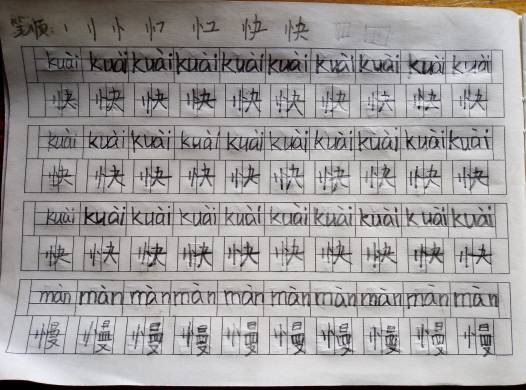 笔顺: 丶 丷 忄 快
kuài kuài kuài kuài kuài kuài kuài kuài kuài kuài
快 快 快 快 快 快 快 快 快 快
kuài kuài kuài kuài kuài kuài kuài kuài kuài kuài
快 快 快 快 快 快 快 快 快 快
kuài kuài kuài kuài kuài kuài kuài kuài kuài kuài
快 快 快 快 快 快 快 快 快 快
màn màn màn màn màn màn màn màn màn màn
慢 慢 慢 慢 慢 慢 慢 慢 慢 慢